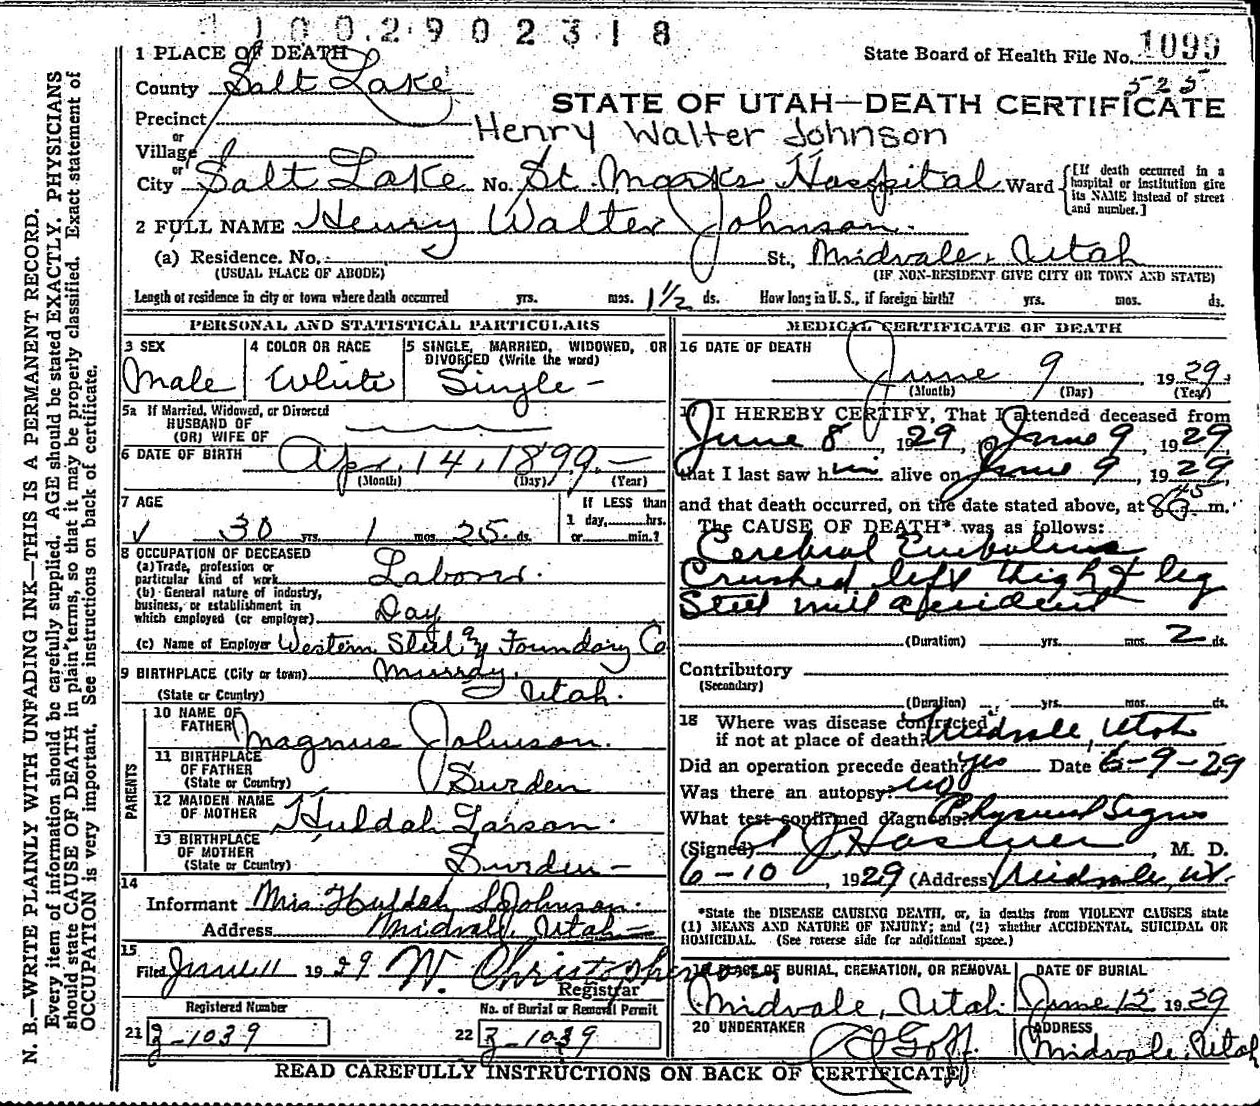 1 1 0 0 2 9 0 2 3 1 8
1 PLACE OF DEATH
State Board of Health File No. 1099
525
County Salt Lake
STATE OF UTAH—DEATH CERTIFICATE
Precinct
Henry Walter Johnson
or
Village
or
City Salt Lake No. St. Marks Hospital Ward
[If death occurred in a hospital or institution give its NAME instead of street and number.]
2 FULL NAME Henry Walter Johnson.
(a) Residence. No. St., Midvale, Utah
(USUAL PLACE OF ABODE) (IF NON-RESIDENT GIVE CITY OR TOWN AND STATE)
Length of residence in city or town where death occurred yrs. mos. 1½ ds. How long in U. S., if foreign birth? yrs. mos. ds.
PERSONAL AND STATISTICAL PARTICULARS
3 SEX
Male
4 COLOR OR RACE
White
5 SINGLE, MARRIED, WIDOWED, OR
DIVORCED (Write the word)
Single —
5a If Married, Widowed, or Divorced
HUSBAND OF
(OR) WIFE OF
6 DATE OF BIRTH Apr. 14, 1899 —
(Month) (Day) (Year)
7 AGE
30 yrs. 1 mos. 25 ds.
If LESS than
1 day, hrs.
or min.?
8 OCCUPATION OF DECEASED
(a) Trade, profession or
particular kind of work Laborer.
(b) General nature of industry,
business, or establishment in
which employed (or employer) Day
(c) Name of Employer Western Steel & Foundry Co
9 BIRTHPLACE (City or town) Murray,
(State or Country) Utah.
PARENTS
10 NAME OF
FATHER Magnus Johnson.
11 BIRTHPLACE
OF FATHER
(State or Country) Sweden
12 MAIDEN NAME
OF MOTHER Huldah Larson.
13 BIRTHPLACE
OF MOTHER
(State or Country) Sweden —
14
Informant Mrs. Huldah Johnson.
Address Midvale, Utah —
15
Filed June 11 1929 W. Christopherson
Registrar
Registered Number
21 Z-1039
No. of Burial or Removal Permit
22 Z-1039
MEDICAL CERTIFICATE OF DEATH
16 DATE OF DEATH
June 9, 1929.
(Month) (Day) (Year)
17 I HEREBY CERTIFY, That I attended deceased from
June 8, 1929, to June 9, 1929
that I last saw him alive on June 9, 1929,
and that death occurred, on the date stated above, at m.
The CAUSE OF DEATH* was as follows:
Cerebral Embolism
Crushed left thigh & leg
Steel mill accident
(Duration) yrs. mos. 2 ds.
Contributory
(Secondary)
(Duration) yrs. mos. ds.
18 Where was disease contracted
if not at place of death? Midvale, Utah
Did an operation precede death? yes Date 6-9-29
Was there an autopsy? no
What test confirmed diagnosis? Physical Signs
(Signed) M. D.
6-10, 1929 (Address) Midvale, Ut.
*State the DISEASE CAUSING DEATH, or, in deaths from VIOLENT CAUSES state
(1) MEANS AND NATURE OF INJURY; and (2) whether ACCIDENTAL, SUICIDAL OR
HOMICIDAL. (See reverse side for additional space.)
19 PLACE OF BURIAL, CREMATION, OR REMOVAL
Midvale, Utah.
DATE OF BURIAL
June 12 1929
20 UNDERTAKER
Goff.
ADDRESS
Midvale, Utah
READ CAREFULLY INSTRUCTIONS ON BACK OF CERTIFICATE
N. B.—WRITE PLAINLY WITH UNFADING INK—THIS IS A PERMANENT RECORD.
Every item of information should be carefully supplied. AGE should be stated EXACTLY. PHYSICIANS
should state CAUSE OF DEATH in plain terms, so that it may be properly classified. Exact statement of
OCCUPATION is very important. See instructions on back of certificate.